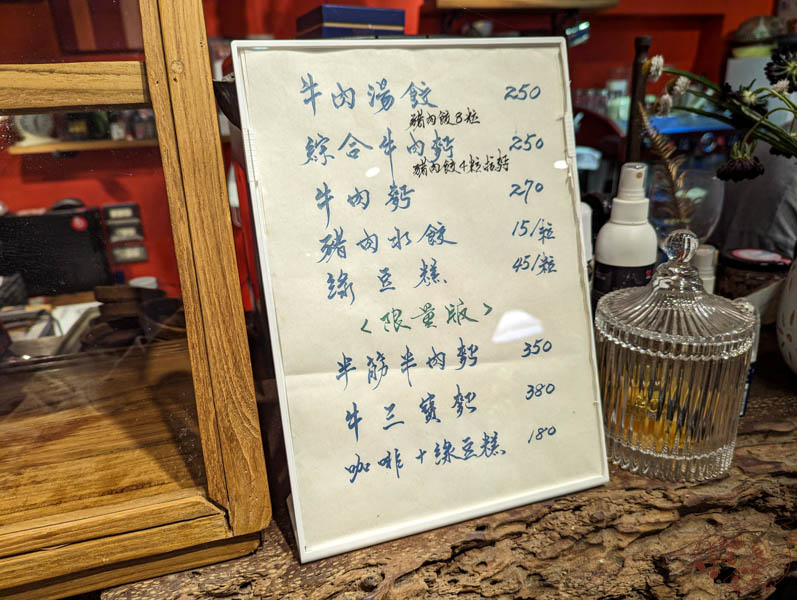 牛肉湯餃 250
豬肉餃8粒
綜合牛肉麵 250
豬肉餃4粒拉麵
牛肉麵 270
豬肉水餃 15/粒
綠豆糕 45/粒
<限量版>
半筋半肉麵 350
牛三寶麵 380
咖啡+綠豆糕 180